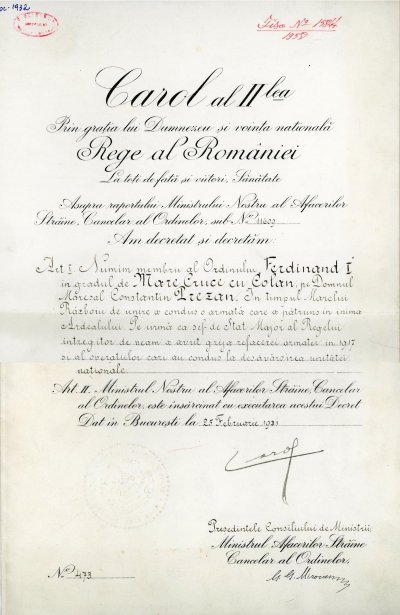 1932
Fisa No
Carol al II lea
Prin graţia lui Dumnezeu şi voinţa naţională
Rege al României
La toţi de faţă şi viitori, Sănătate
Asupra raportului Ministrului Nostru al Afacerilor
Străine, Cancelar al Ordinelor, sub No. 11609
Am decretat şi decretăm:
Art I. Numim membru al Ordinului Ferdinand I
în gradul de Mare Cruce cu Colan, pe Domnul
Mareşal Constantin Prezan. In timpul Marelui
Războiu de unire a condus o armată care a pătruns în inima
Ardealului. Pe urmă ca şef de Stat Major al Regelui
întregitor de neam a avut grija refacerei armatei în 1917
şi al operaţiilor cari au condus la desăvârşirea unităţei
naţionale
Art. II. Ministrul Nostru al Afacerilor Străine, Cancelar
al Ordinelor, este însărcinat cu executarea acestui Decret
Dat în Bucureşti la 25 Februarie 1931
Carol
Preşedintele Consiliului de Miniştri
Ministrul Afacerilor Străine
Cancelar al Ordinelor,
No. 473